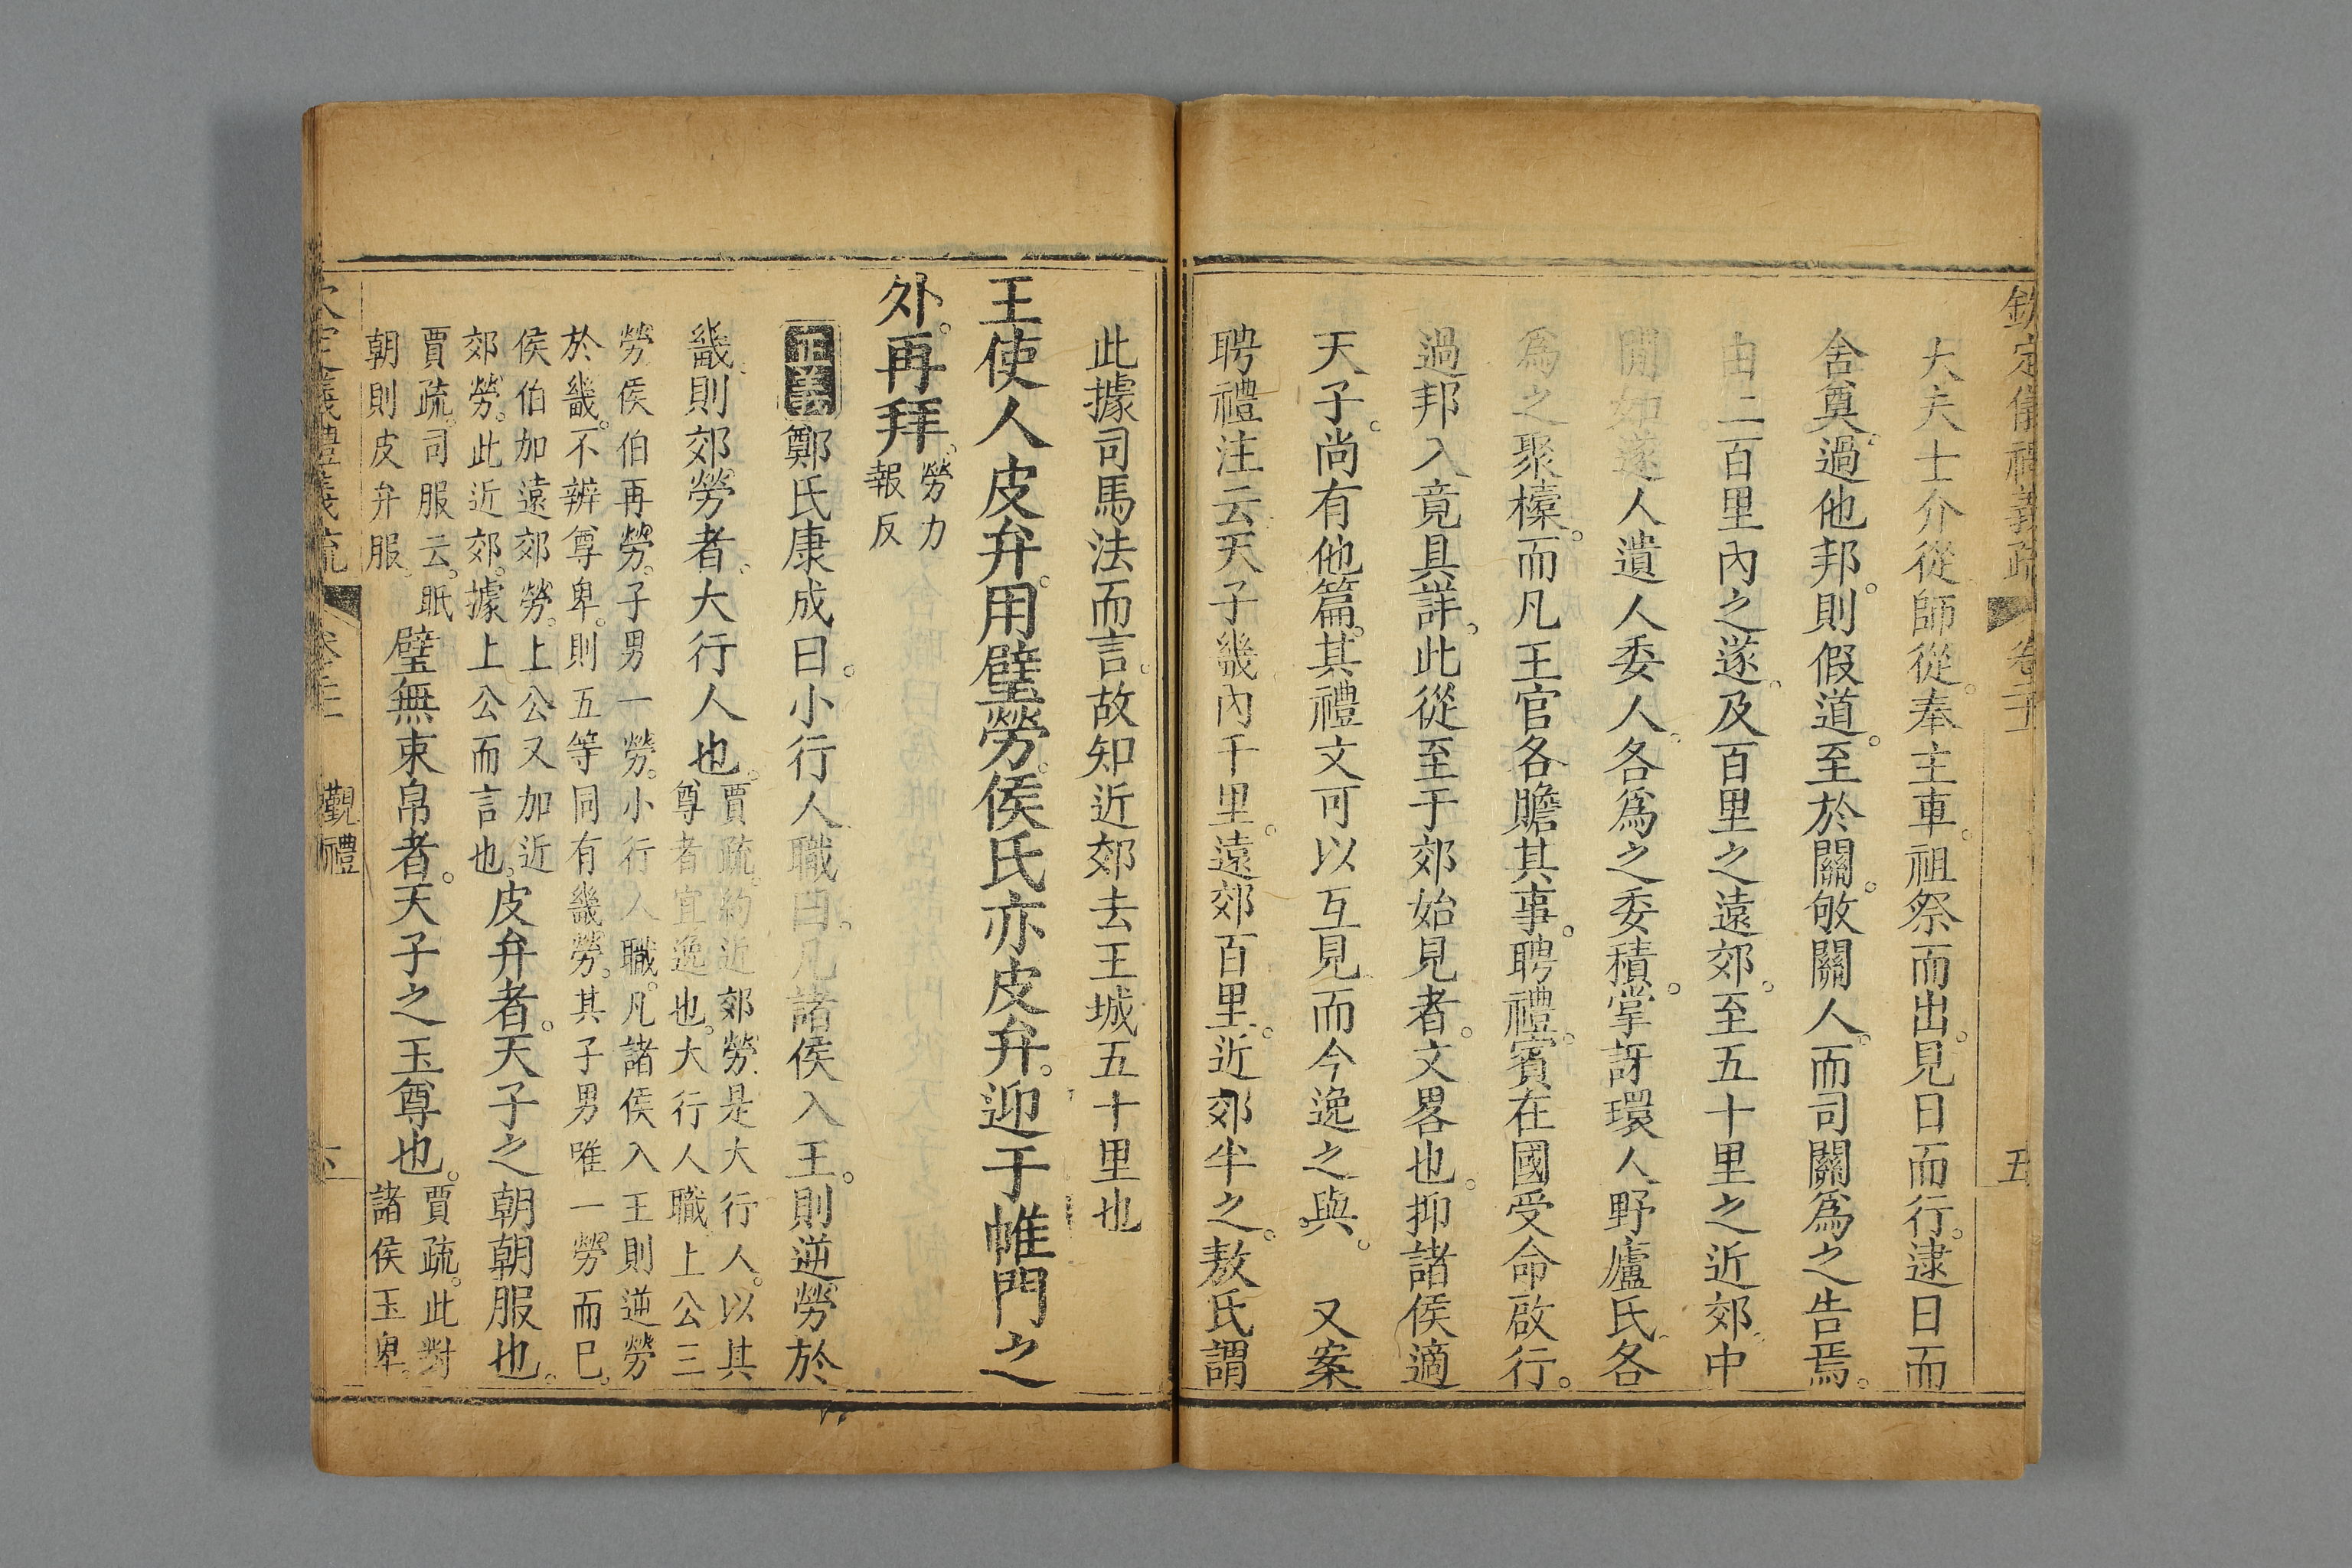 欽定儀禮義疏 卷二十 五
大夫士介從師從。奉主車。祖祭而出。見日而行。逮日而
舍奠。過他邦。則假道。至於關。攽關人。而司關爲之告焉。
由二百里內之遂。及百里之遠郊。至五十里之近郊。中
閒如遂人遺人委人。各爲之委積。掌訝環人野廬氏各
爲之聚㯓。而凡王官各贍其事。聘禮。賓在國受命啟行。
過邦入竟具詳。此從至于郊始見者。文畧也。抑諸侯適
天子。尚有他篇。其禮文可以互見。而今逸之與。 又案
聘禮注云。天子畿內千里。遠郊百里。近郊半之。敖氏謂
此據司馬法而言。故知近郊去王城五十里也
王使人皮弁。用璧勞。侯氏亦皮弁。迎于帷門之
外。再拜。勞力
報反
正義鄭氏康成曰。小行人職曰。凡諸侯入王。則逆勞於
畿。則郊勞者。大行人也。賈疏。約近郊勞。是大行人。以其
尊者宜逸也。大行人職。上公三
勞。侯伯再勞。子男一勞。小行人職。凡諸侯入王則逆勞
於畿。不辨尊卑。則五等同有畿勞。其子男唯一勞而已。
侯伯加遠郊勞。上公又加近
郊勞。此近郊。據上公而言也。皮弁者。天子之朝朝服也。
賈疏。司服云。眂
朝則皮弁服。璧無束帛者。天子之玉尊也。賈疏。此對
諸侯玉卑。
欽定儀禮義疏 卷二十 觀禮 六